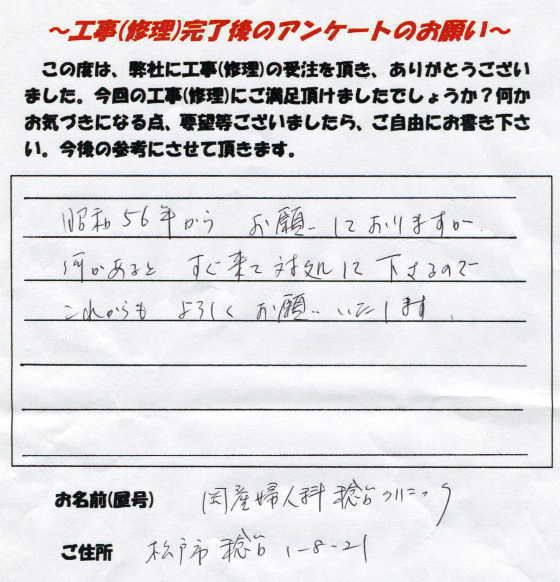 ～工事(修理)完了後のアンケートのお願い～
この度は、弊社に工事(修理)の受注を頂き、ありがとうござい
ました。今回の工事(修理)にご満足頂けましたでしょうか？何か
お気づきになる点、要望等ございましたら、ご自由にお書き下さ
い。今後の参考にさせて頂きます。
昭和56年から お願いしておりますが
何かあると すぐ来て対処して下さるので
これからも よろしくお願いいたします。
お名前(屋号) 岡産婦人科稔台クリニック
ご住所 松戸市稔台1-8-21